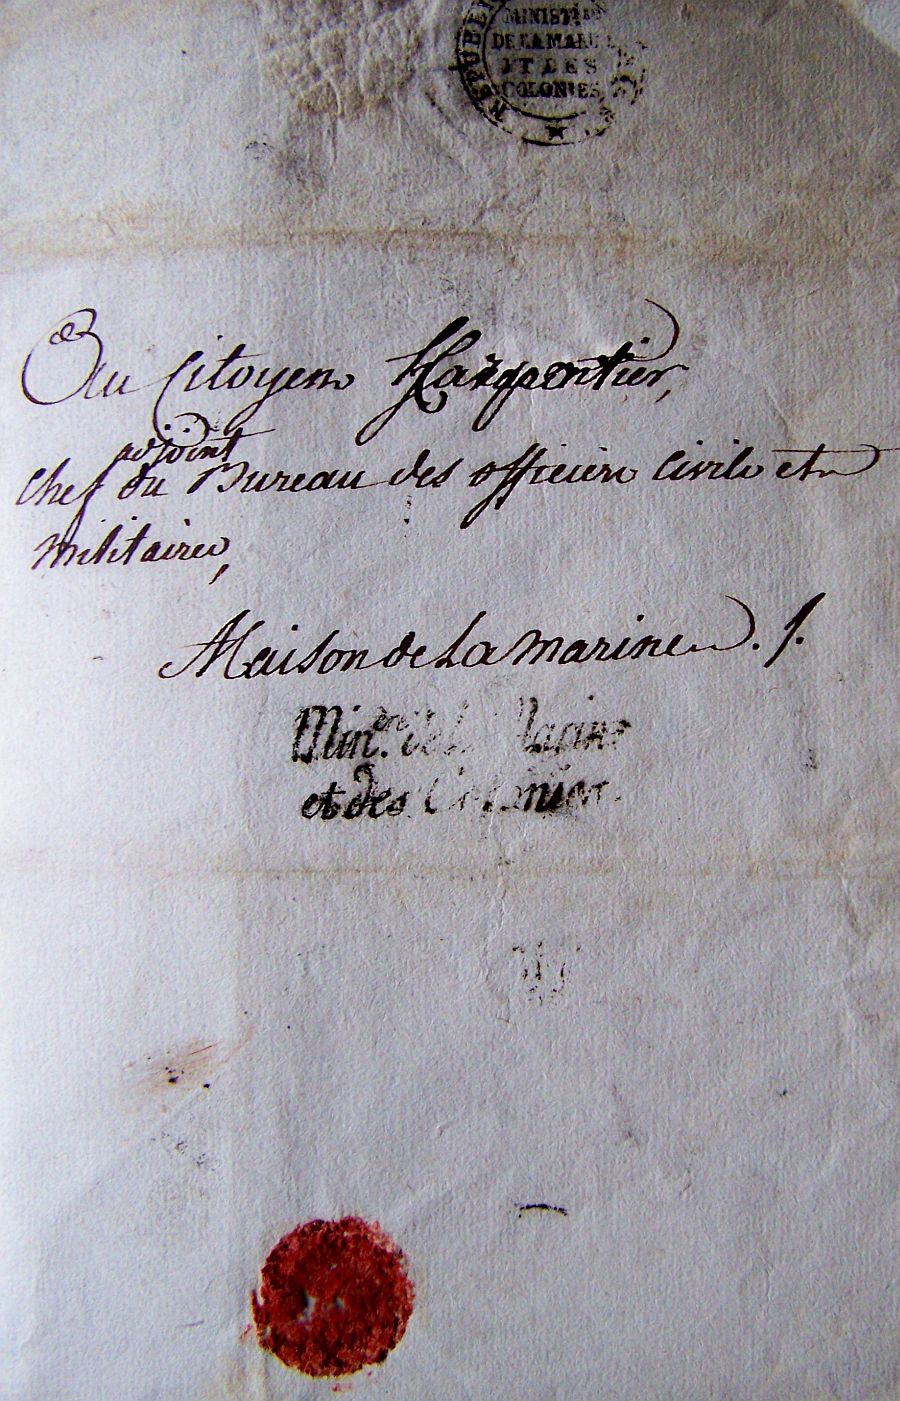 MINIST
DE LA MAR
ET DES
COLONIES
Au Citoyen Harpentier,
adjoint
Chef du Bureau des officiers civils et
militaires,
Maison de La marine. /.
Min.re de la Marine
et des Colonies.